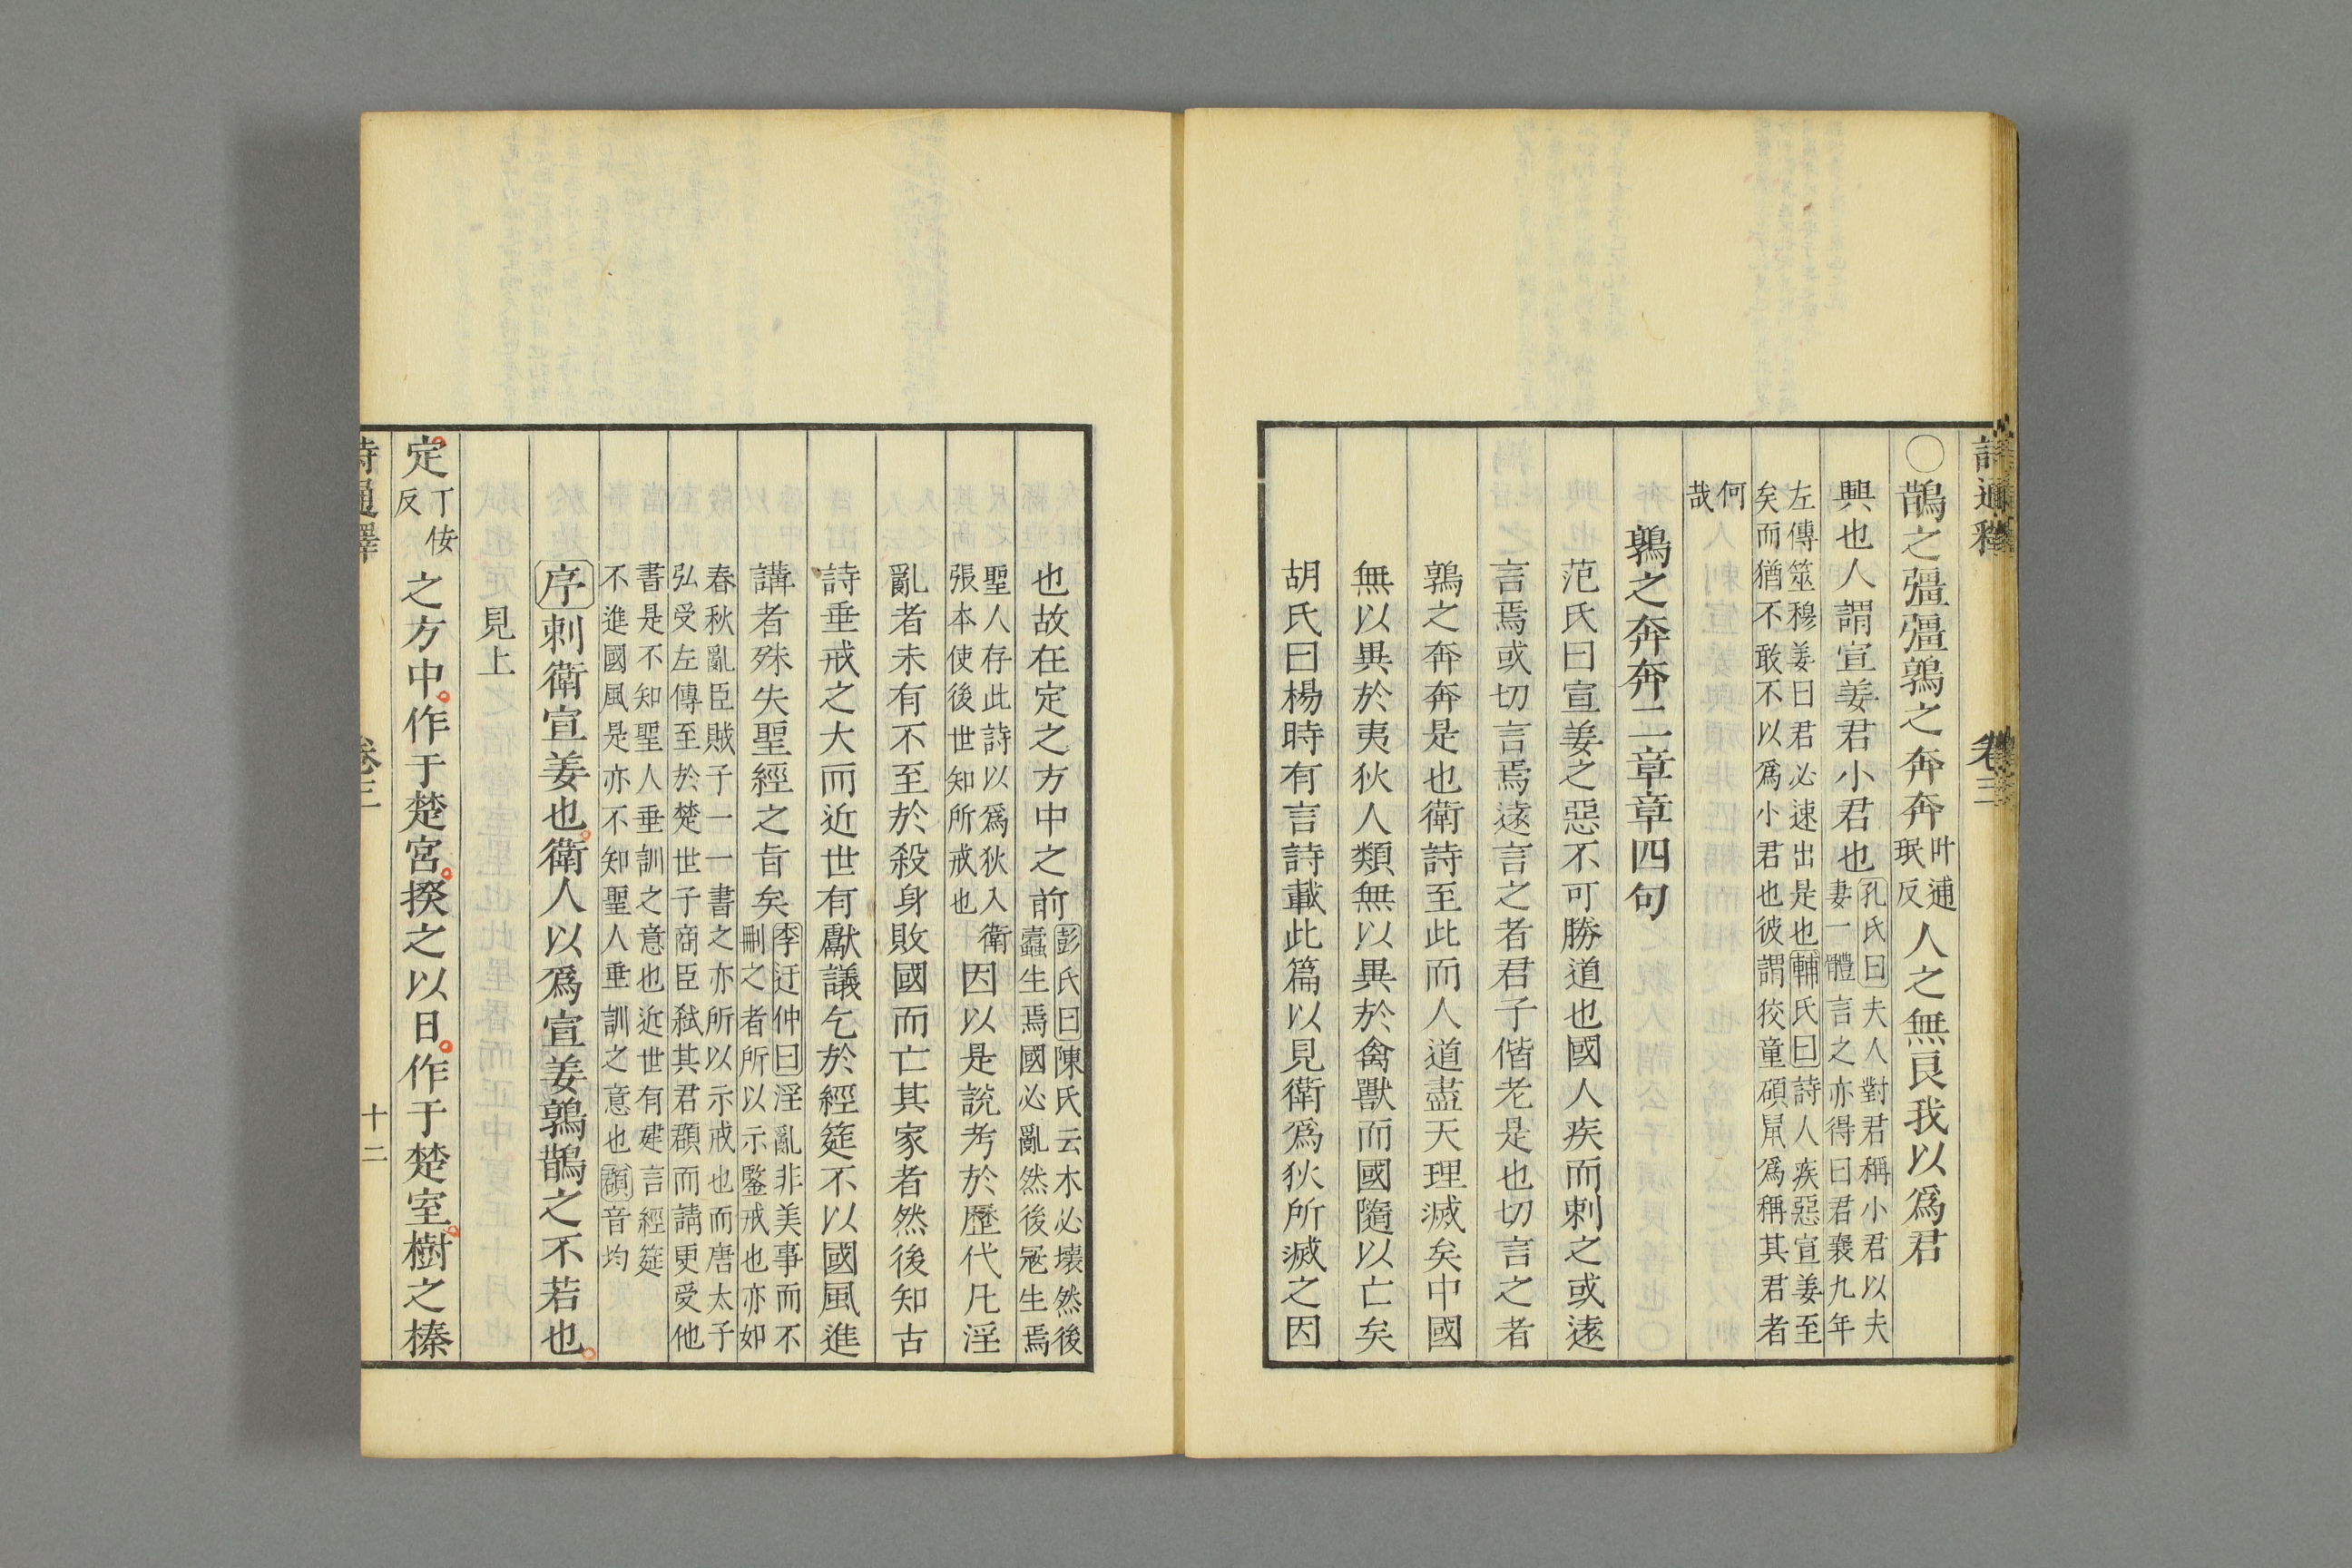 詩通釋　卷三
○鵲之彊彊鶉之奔奔叶逋珉反人之無良我以爲君
興也人謂宣姜君小君也孔氏曰夫人對君稱小君以夫妻一體言之亦得曰君襄九年
左傳筮穆姜曰君必速出是也輔氏曰詩人疾惡宣姜至矣而猶不敢不以爲小君也彼謂狡童碩鼠爲稱其君者
何哉
鶉之奔奔二章章四句
范氏曰宣姜之惡不可勝道也國人疾而刺之或遠
言焉或切言焉遠言之者君子偕老是也切言之者
鶉之奔奔是也衛詩至此而人道盡天理滅矣中國
無以異於夷狄人類無以異於禽獸而國隨以亡矣
胡氏曰楊時有言詩載此篇以見衛爲狄所滅之因
也故在定之方中之前彭氏曰陳氏云木必壞然後蠧生焉國必亂然後冦生焉
聖人存此詩以爲狄入衛張本使後世知所戒也因以是說考於歷代凡淫
亂者未有不至於殺身敗國而亡其家者然後知古
詩垂戒之大而近世有獻議乞於經筵不以國風進
講者殊失聖經之旨矣李迂仲曰淫亂非美事而不刪之者所以示鑒戒也亦如
春秋亂臣賊子一一書之亦所以示戒也而唐太子弘受左傳至於楚世子商臣弑其君頵而請更受他
書是不知聖人垂訓之意也近世有建言經筵不進國風是亦不知聖人垂訓之意也頵音均
序刺衛宣姜也衛人以爲宣姜鶉鵲之不若也
見上
定丁佞反之方中作于楚宮揆之以日作于楚室樹之榛
詩通釋　卷三　十二